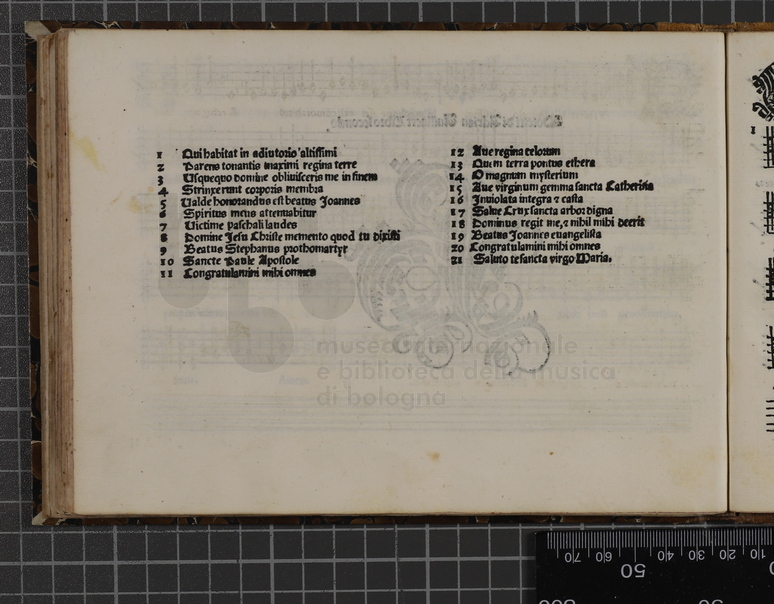 1 Qui habitat in adiutorio altissimi
2 Parens tonantis maximi regina terre
3 Usquequo domine oblivisceris me in finem
4 Strinxerunt corporis membra
5 Valde honorandus est beatus Joannes
6 Spiritus meus attenuabitur
7 Victime paschali laudes
8 Domine Jesu Christe memento quod tu dixisti
9 Beatus Stephanus prothomartyr
10 Sancte Paule Apostole
11 Congratulamini mihi omnes
12 Ave regina celorum
13 Quem terra pontus ethera
14 O magnum mysterium
15 Ave virginum gemma sancta Catherina
16 Inviolata integra & casta
17 Salve Crux sancta arbor digna
18 Dominus regit me, & nihil mihi deerit
19 Beatus Joannes euangelista
20 Congratulamini mihi omnes
21 Saluto te sancta virgo Maria.
museo internazionale
e biblioteca della musica
di bologna
70 60 50 40 30 20 10
50